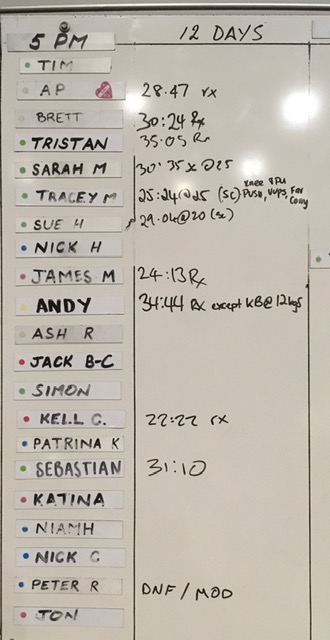 5 PM 12 DAYS
TIM
AP 28.47 rx
BRETT 30:24 Rx
TRISTAN 35.05 Rx
SARAH M 30:35 x @25
TRACEY M 25:24@25 (SC) Knee Push, Vups, Far Carry
SUE H 29.04@20 (sc)
NICK H
JAMES M 24:13 Rx
ANDY 34:44 Rx except KB@12kgs
ASH R
JACK B-C
SIMON
KELL C. 22:22 rx
PATRINA K
SEBASTIAN 31:10
KATINA
NIAMH
NICK C
PETER R DNF / MOD
TON